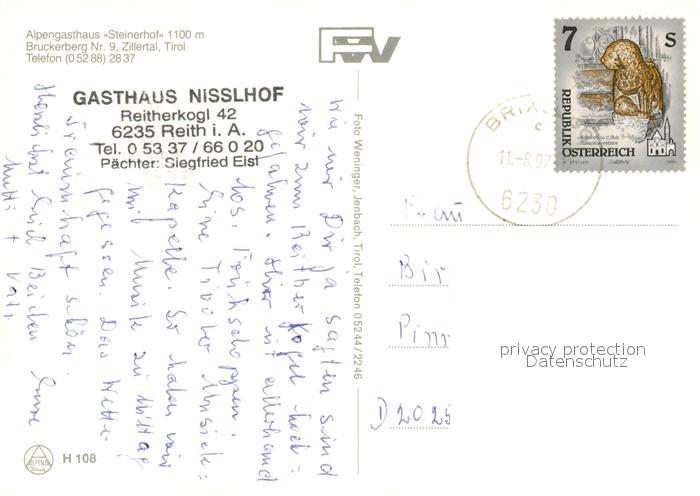 Alpengasthaus »Steinerhof« 1100 m
Bruckerberg Nr. 9, Zillertal, Tirol
Telefon (0 52 88) 28 37
GASTHAUS NISSLHOF
Reitherkogl 42
6235 Reith i. A.
Tel. 0 53 37 / 66 0 20
Pächter: Siegfried Eisl
Wie wir Dir ja sagten sind
wir zum Reither Kogel hoch=
gefahren. Hier ist allerhand
los. Frühschoppen.
Eine Tiroler Musik=
kapelle. So haben wir
mit Musik zu Mittag
gegessen. Das Wetter
traumhaft schön.
Euch Beiden Eure
Mutti + Vati
Foto Weninger, Jenbach, Tirol, Telefon 0 52 44 / 22 46
7 S
REPUBLIK
ÖSTERREICH
11.-8.97
6230
Frau
Bir
Pinn
D 2025
privacy protection
Datenschutz
ALPINA
H 108